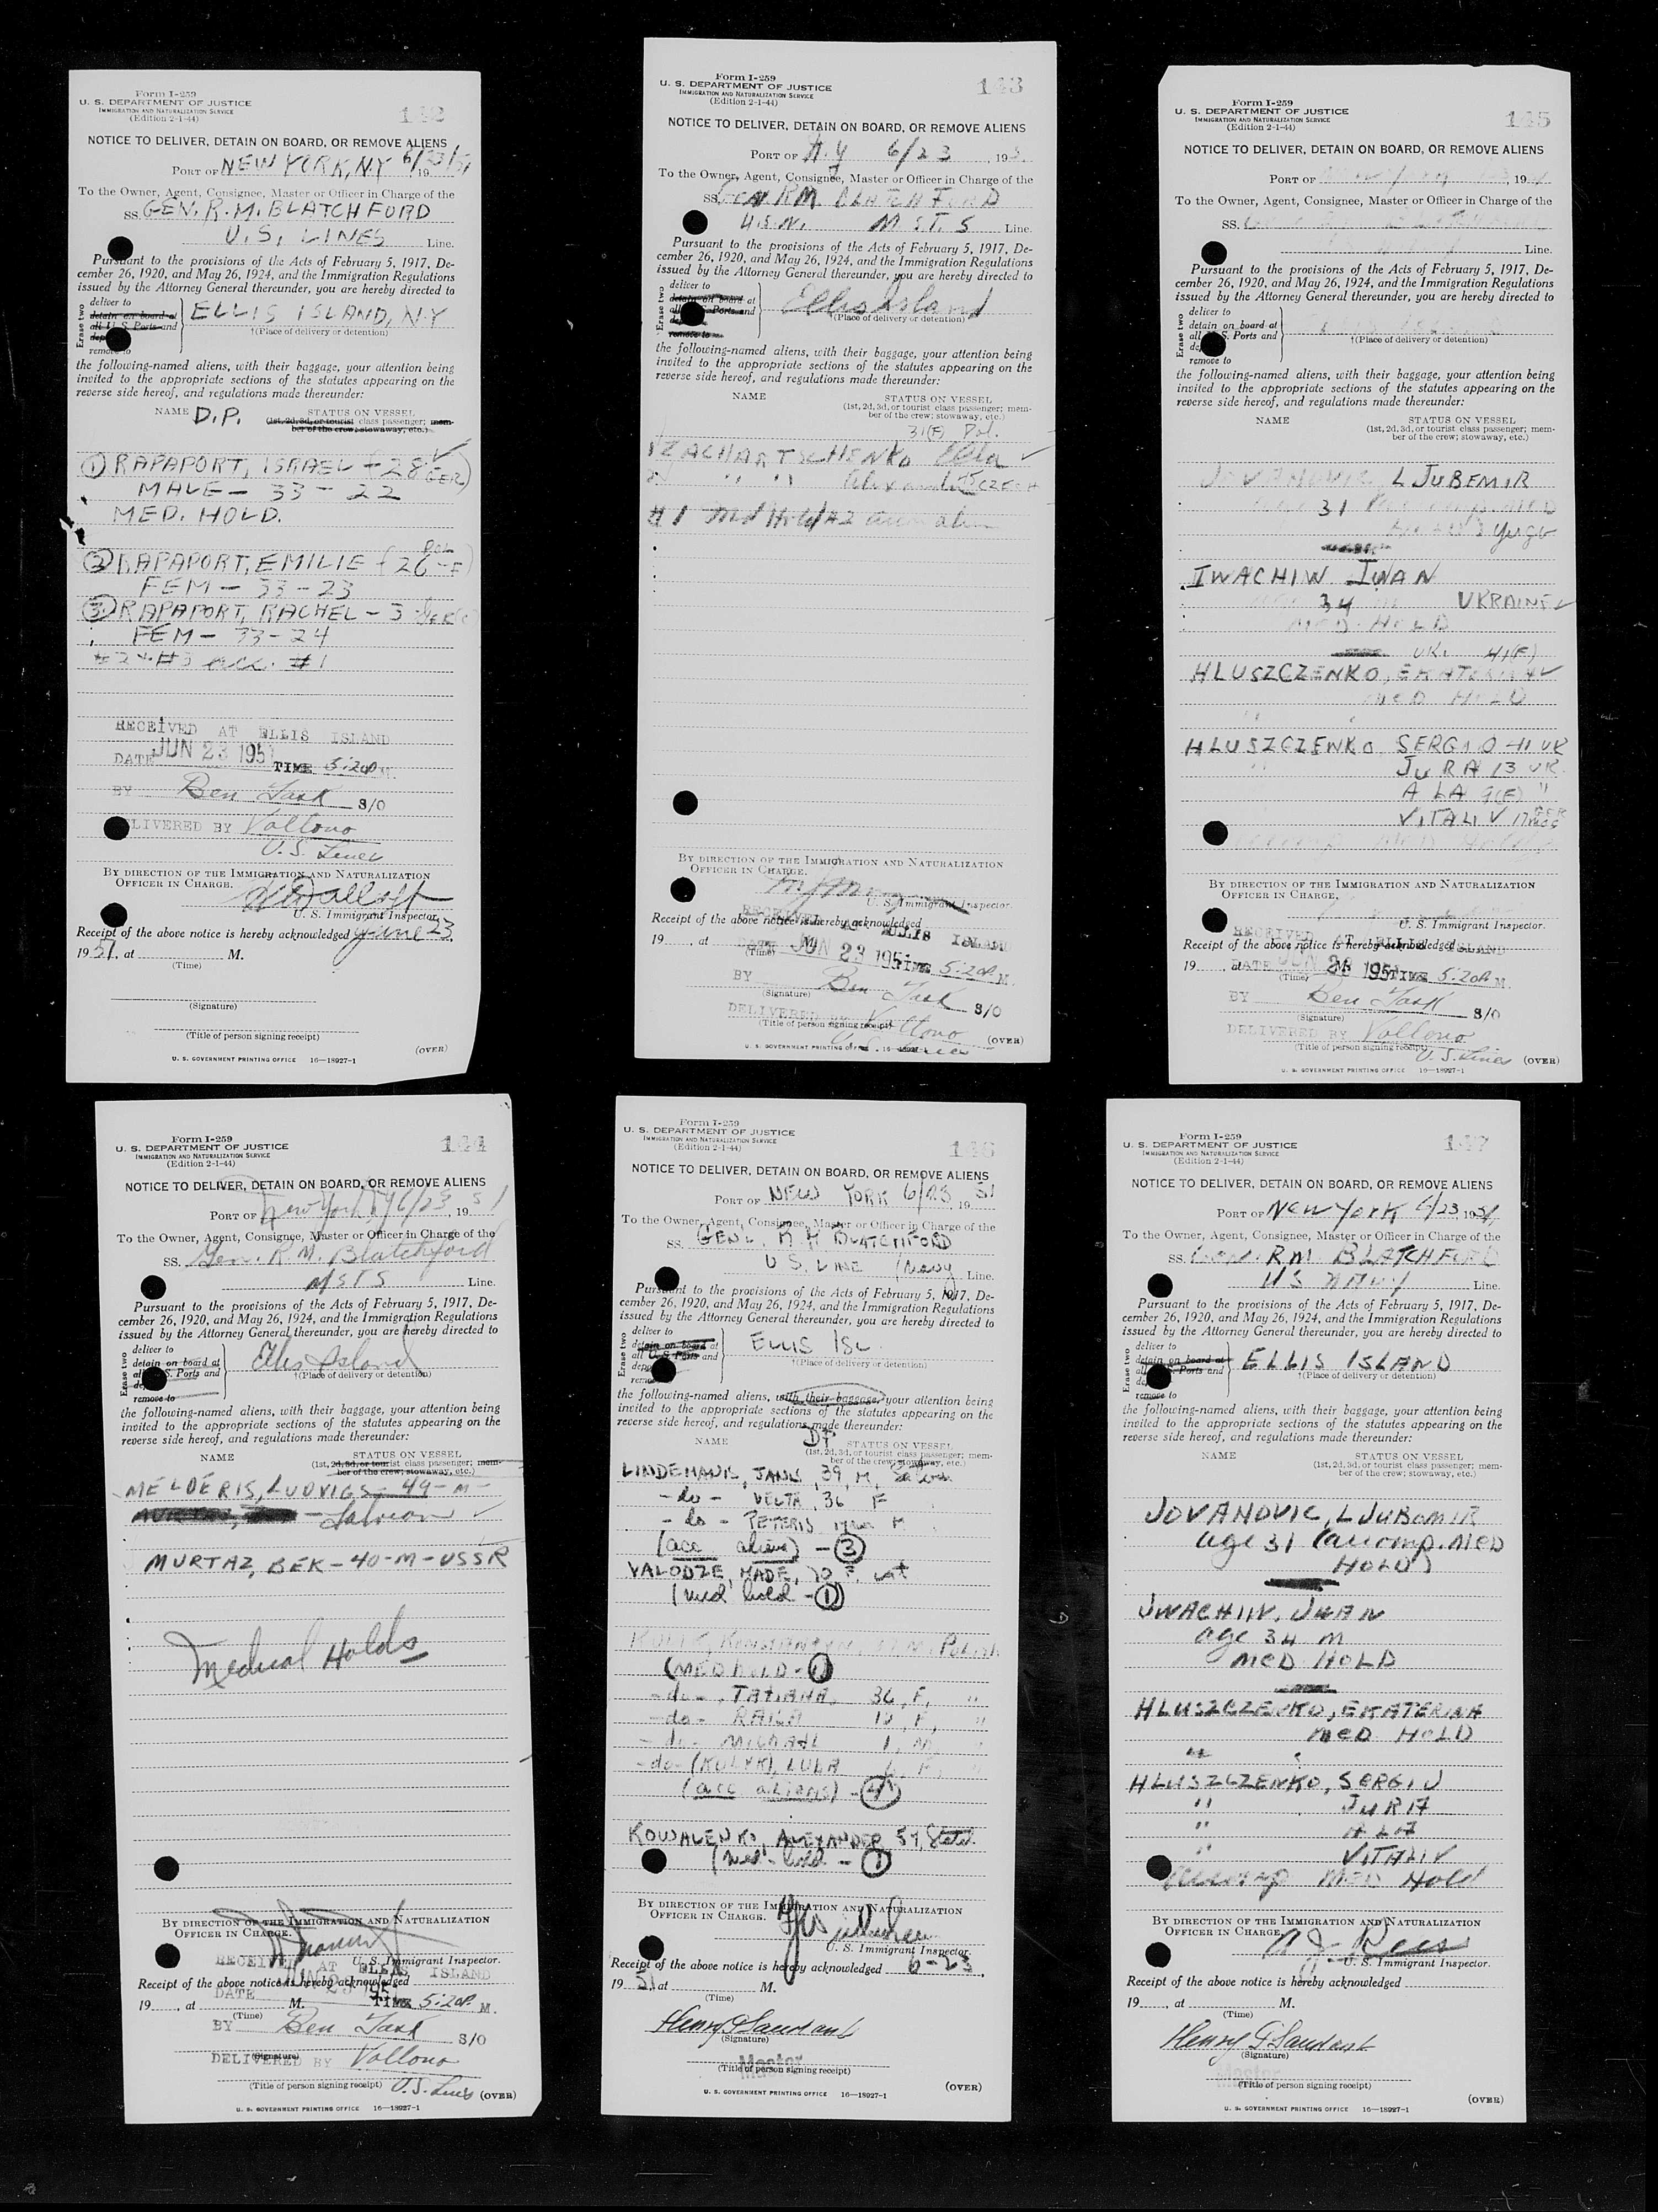 Form I-259
U. S. DEPARTMENT OF JUSTICE
IMMIGRATION AND NATURALIZATION SERVICE
(Edition 2-1-44)
142
NOTICE TO DELIVER, DETAIN ON BOARD, OR REMOVE ALIENS
PORT OF NEW YORK, N.Y 6/23/51
To the Owner, Agent, Consignee, Master or Officer in Charge of the
SS. GEN. R. M. BLATCHFORD
U.S. LINES Line.
Pursuant to the provisions of the Acts of February 5, 1917, De-
cember 26, 1920, and May 26, 1924, and the Immigration Regulations
issued by the Attorney General thereunder, you are hereby directed to
Erase two
deliver to
detain on board at
all U.S. Ports and
remove to
ELLIS ISLAND, N.Y
†(Place of delivery or detention)
the following-named aliens, with their baggage, your attention being
invited to the appropriate sections of the statutes appearing on the
reverse side hereof, and regulations made thereunder:
NAME D.P. STATUS ON VESSEL
(1st, 2d, 3d, or tourist class passenger; mem-
ber of the crew; stowaway, etc.)
① RAPAPORT, ISRAEL - 28 GER)
MALE - 33 - 22
MED. HOLD.
② RAPAPORT, EMILIE (26 - F)
FEM - 33 - 23
③ RAPAPORT, RACHEL - 3
FEM - 33 - 24
#2 + #3 acc. #1
RECEIVED AT ELLIS ISLAND
DATE JUN 23 1951 TIME 5:20 P. M.
BY Ben Task S/O
DELIVERED BY Vollono
U.S. Lines
BY DIRECTION OF THE IMMIGRATION AND NATURALIZATION
OFFICER IN CHARGE.
U. S. Immigrant Inspector.
Receipt of the above notice is hereby acknowledged June 23,
1951, at M.
(Time)
(Signature)
(Title of person signing receipt)
U. S. GOVERNMENT PRINTING OFFICE 16—18927-1
(OVER)
Form I-259
U. S. DEPARTMENT OF JUSTICE
IMMIGRATION AND NATURALIZATION SERVICE
(Edition 2-1-44)
143
NOTICE TO DELIVER, DETAIN ON BOARD, OR REMOVE ALIENS
PORT OF N.Y 6/23, 195
To the Owner, Agent, Consignee, Master or Officer in Charge of the
SS. GEN RM BLATCHFORD
U.S.N. M.S.T.S Line.
Pursuant to the provisions of the Acts of February 5, 1917, De-
cember 26, 1920, and May 26, 1924, and the Immigration Regulations
issued by the Attorney General thereunder, you are hereby directed to
Erase two
deliver to
detain on board at
all Ports and
remove to
Ellis Island
†(Place of delivery or detention)
the following-named aliens, with their baggage, your attention being
invited to the appropriate sections of the statutes appearing on the
reverse side hereof, and regulations made thereunder:
NAME STATUS ON VESSEL
(1st, 2d, 3d, or tourist class passenger; mem-
ber of the crew; stowaway, etc.)
31(F) Pol.
1 ZACHARTSCHENKO Ella
2 " " CZECH
#1 Md Hold #2 alien
BY DIRECTION OF THE IMMIGRATION AND NATURALIZATION
OFFICER IN CHARGE.
U. S. Immigrant Inspector.
Receipt of the above notice is hereby acknowledged
RECEIVED AT ELLIS ISLAND
19, at M.
(Time)
DATE JUN 23 1951 TIME 5:20 P. M.
BY Ben Task S/O
(Signature)
DELIVERED BY Vollono
(Title of person signing receipt)
U.S. Lines
(OVER)
U. S. GOVERNMENT PRINTING OFFICE 16—18927-1
Form I-259
U. S. DEPARTMENT OF JUSTICE
IMMIGRATION AND NATURALIZATION SERVICE
(Edition 2-1-44)
145
NOTICE TO DELIVER, DETAIN ON BOARD, OR REMOVE ALIENS
PORT OF , 19
To the Owner, Agent, Consignee, Master or Officer in Charge of the
SS.
Line.
Pursuant to the provisions of the Acts of February 5, 1917, De-
cember 26, 1920, and May 26, 1924, and the Immigration Regulations
issued by the Attorney General thereunder, you are hereby directed to
Erase two
deliver to
detain on board at
all U.S. Ports and
remove to
†(Place of delivery or detention)
the following-named aliens, with their baggage, your attention being
invited to the appropriate sections of the statutes appearing on the
reverse side hereof, and regulations made thereunder:
NAME STATUS ON VESSEL
(1st, 2d, 3d, or tourist class passenger; mem-
ber of the crew; stowaway, etc.)
JOVANOVIC, LJUBEMIR
31 MED
HOLD) Yugo
IWACHIW IWAN
34 m UKRAINE
MED. HOLD
UKr 41(F)
HLUSZCZENKO, EKATERINA
MED HOLD
" "
HLUSZCZENKO SERGIO 11 UK
" JURA 13 UK
ALA 9(F) "
VITALIV 17mos GER
MED Hold
BY DIRECTION OF THE IMMIGRATION AND NATURALIZATION
OFFICER IN CHARGE.
U. S. Immigrant Inspector.
RECEIVED AT ELLIS ISLAND
Receipt of the above notice is hereby acknowledged
19, at M.
(Time)
DATE JUN 23 1951 TIME 5:20 P M.
BY Ben Task S/O
(Signature)
DELIVERED BY Vollono
(Title of person signing receipt)
U.S. Lines (OVER)
U. S. GOVERNMENT PRINTING OFFICE 16—18927-1
Form I-259
U. S. DEPARTMENT OF JUSTICE
IMMIGRATION AND NATURALIZATION SERVICE
(Edition 2-1-44)
144
NOTICE TO DELIVER, DETAIN ON BOARD, OR REMOVE ALIENS
PORT OF New York NY 6/23, 1951
To the Owner, Agent, Consignee, Master or Officer in Charge of the
SS. Gen. R. M. Blatchford
MSTS Line.
Pursuant to the provisions of the Acts of February 5, 1917, De-
cember 26, 1920, and May 26, 1924, and the Immigration Regulations
issued by the Attorney General thereunder, you are hereby directed to
Erase two
deliver to
detain on board at
all U.S. Ports and
remove to
Ellis Island
†(Place of delivery or detention)
the following-named aliens, with their baggage, your attention being
invited to the appropriate sections of the statutes appearing on the
reverse side hereof, and regulations made thereunder:
NAME STATUS ON VESSEL
(1st, 2d, 3d, or tourist class passenger; mem-
ber of the crew; stowaway, etc.)
MELDERIS, LUDVIGS - 49 - M -
- Latvian
MURTAZ, BEK - 40 - M - USSR
Medical Holds
BY DIRECTION OF THE IMMIGRATION AND NATURALIZATION
OFFICER IN CHARGE.
U. S. Immigrant Inspector.
RECEIVED AT ELLIS ISLAND
Receipt of the above notice is hereby acknowledged
DATE JUN 23 1951 TIME 5:20 P. M.
19, at M.
(Time)
BY Ben Task S/O
(Signature)
DELIVERED BY Vollono
(Title of person signing receipt) U.S. Lines (OVER)
U. S. GOVERNMENT PRINTING OFFICE 16—18927-1
Form I-259
U. S. DEPARTMENT OF JUSTICE
IMMIGRATION AND NATURALIZATION SERVICE
(Edition 2-1-44)
146
NOTICE TO DELIVER, DETAIN ON BOARD, OR REMOVE ALIENS
PORT OF NEW YORK 6/23 1951
To the Owner, Agent, Consignee, Master or Officer in Charge of the
SS. GENL. R M BLATCHFORD
U S. LINE (Navy Line.
Pursuant to the provisions of the Acts of February 5, 1917, De-
cember 26, 1920, and May 26, 1924, and the Immigration Regulations
issued by the Attorney General thereunder, you are hereby directed to
Erase two
deliver to
detain on board at
all U.S. Ports and
remove to
ELLIS ISL.
†(Place of delivery or detention)
the following-named aliens, with their baggage, your attention being
invited to the appropriate sections of the statutes appearing on the
reverse side hereof, and regulations made thereunder:
NAME DP STATUS ON VESSEL
(1st, 2d, 3d, or tourist class passenger; mem-
ber of the crew; stowaway, etc.)
LINDEMANIS, JANIS, 39, M,
- do - VELTA, 36 F
- do - PETERIS M
(acc aliens) - ③
VALODZE, MADE, 70 F, Lat
(med hold - ①)
KONSTANTYN, M, Polish
(MED HOLD - ①
- do - TATIANA, 36, F, "
- do - RAISA F, "
- do - MICHAEL 1, M, "
- do - (KULYK), LUBA F, "
(acc aliens) - ④
KOWALENKO, ALEXANDER, 57,
(med - hold - ①
BY DIRECTION OF THE IMMIGRATION AND NATURALIZATION
OFFICER IN CHARGE.
U. S. Immigrant Inspector.
Receipt of the above notice is hereby acknowledged 6-23,
1951 at M.
(Time)
(Signature)
Master
(Title of person signing receipt)
(OVER)
U. S. GOVERNMENT PRINTING OFFICE 16—18927-1
Form I-259
U. S. DEPARTMENT OF JUSTICE
IMMIGRATION AND NATURALIZATION SERVICE
(Edition 2-1-44)
147
NOTICE TO DELIVER, DETAIN ON BOARD, OR REMOVE ALIENS
PORT OF New York 6/23 1951
To the Owner, Agent, Consignee, Master or Officer in Charge of the
SS. Gen. RM BLATCHFORD
US NAVY Line.
Pursuant to the provisions of the Acts of February 5, 1917, De-
cember 26, 1920, and May 26, 1924, and the Immigration Regulations
issued by the Attorney General thereunder, you are hereby directed to
Erase two
deliver to
detain on board at
all U.S. Ports and
remove to
ELLIS ISLAND
†(Place of delivery or detention)
the following-named aliens, with their baggage, your attention being
invited to the appropriate sections of the statutes appearing on the
reverse side hereof, and regulations made thereunder:
NAME STATUS ON VESSEL
(1st, 2d, 3d, or tourist class passenger; mem-
ber of the crew; stowaway, etc.)
JOVANOVIC, LJUBOMIR
age 31 (accomp. MED
HOLD)
IWACHIW, IWAN
age 34 M
MED HOLD
HLUSZCZENKO, EKATERINA
MED HOLD
" "
HLUSZCZENKO, SERGIU
" JURA
" ALA
" VITALIV
accomp MED Hold
BY DIRECTION OF THE IMMIGRATION AND NATURALIZATION
OFFICER IN CHARGE.
A J Rees
U. S. Immigrant Inspector.
Receipt of the above notice is hereby acknowledged
19, at M.
(Time)
(Signature)
Master
(Title of person signing receipt)
(OVER)
U. S. GOVERNMENT PRINTING OFFICE 16—18927-1